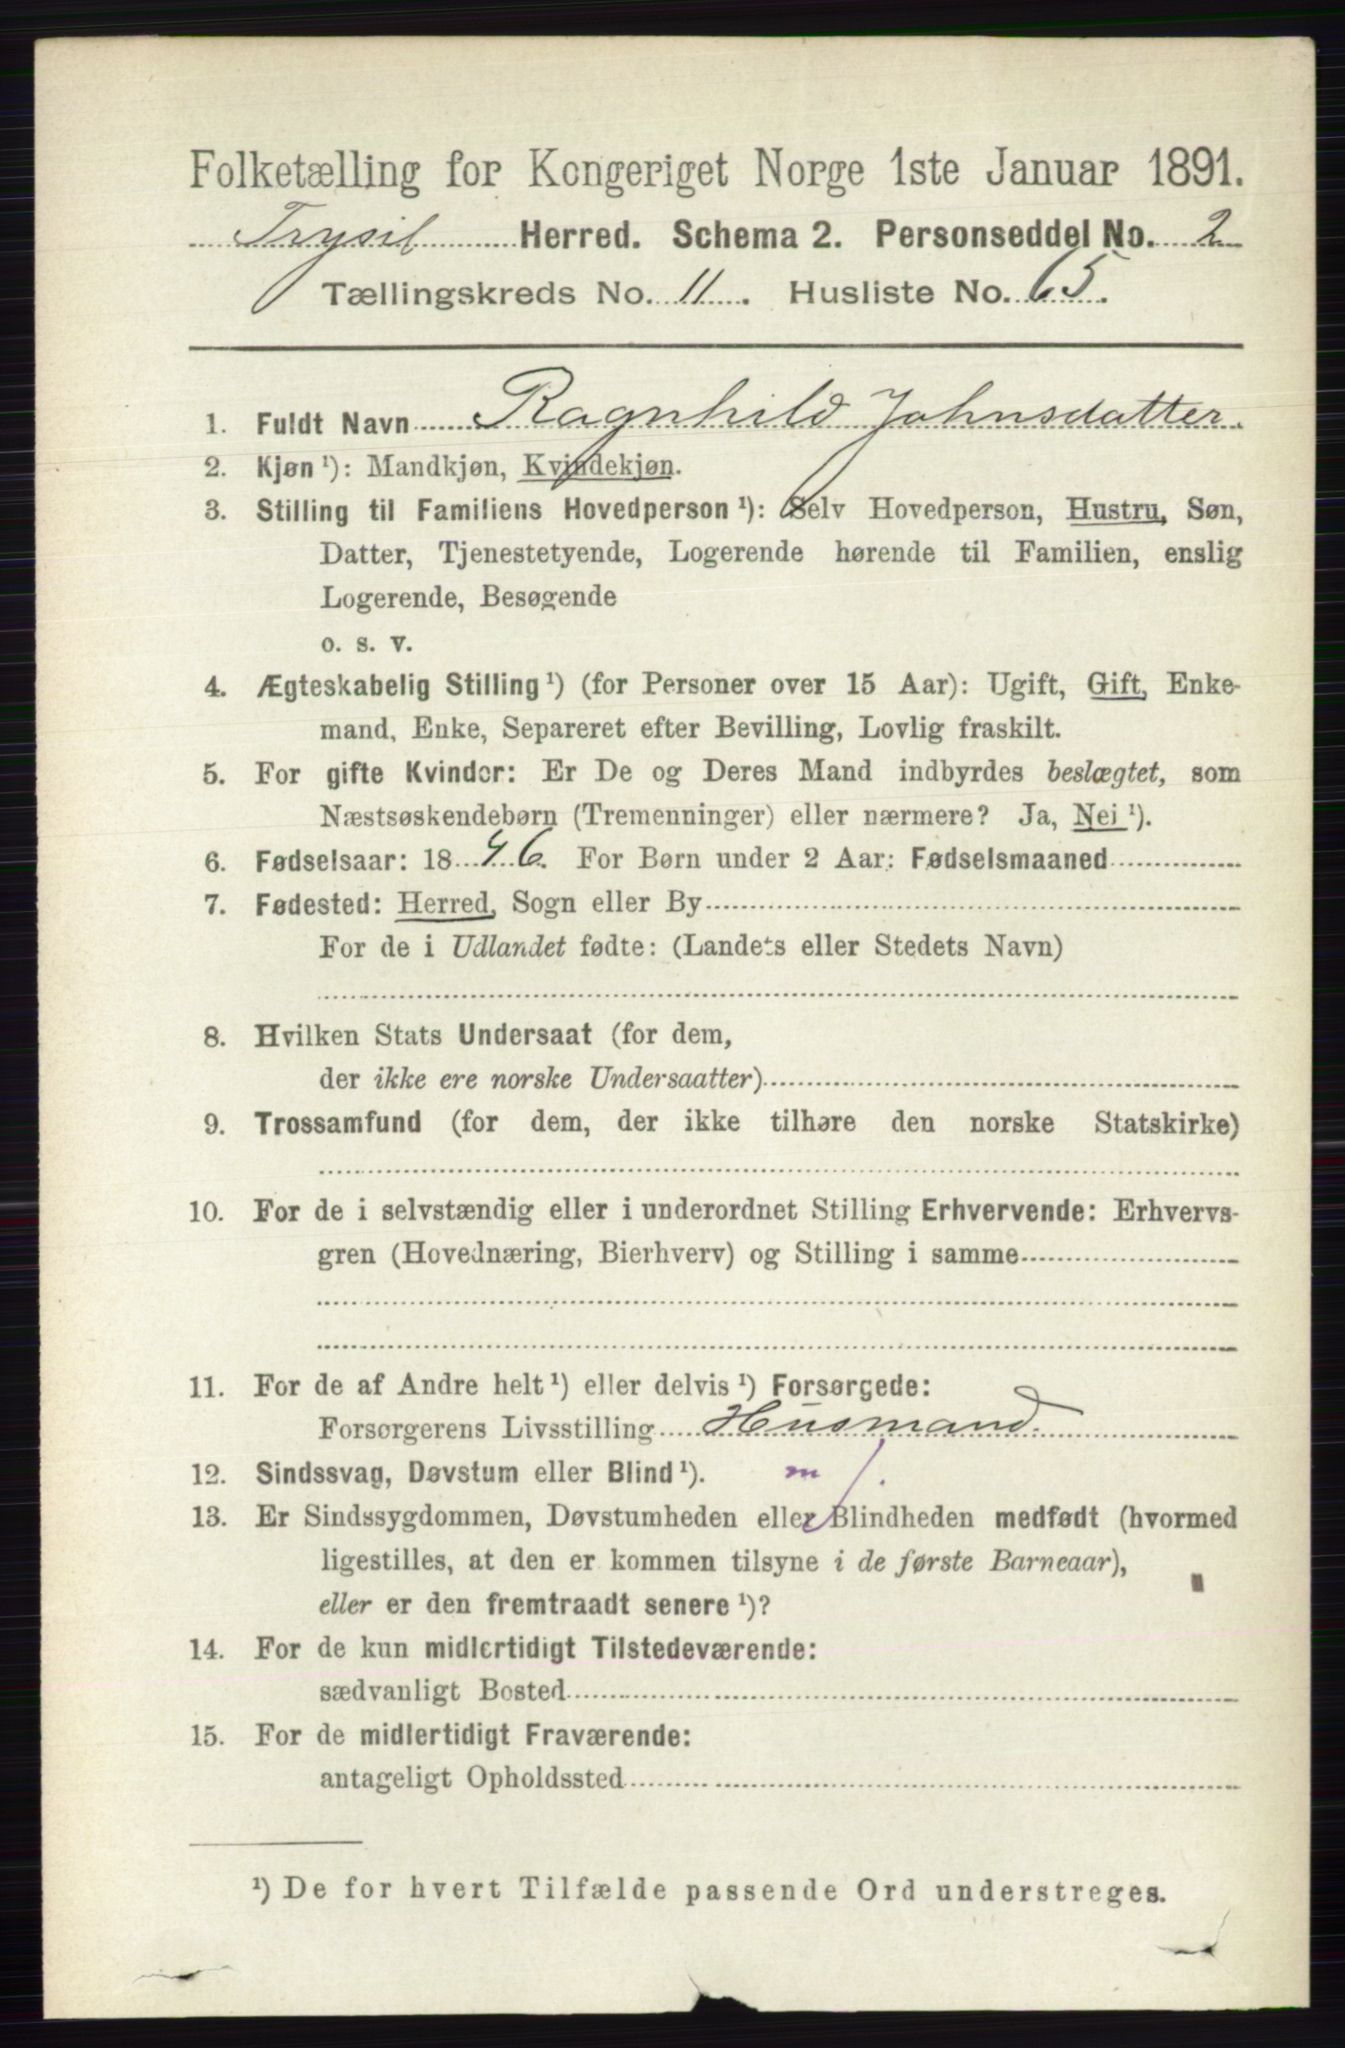 Folketælling for Kongeriget Norge 1ste Januar 1891.
Trysil Herred. Schema 2. Personseddel No. 2
Tællingskreds No. 11. Husliste No. 65.
1. Fuldt Navn Ragnhild Johnsdatter.
2. Kjøn ¹): Mandkjøn, Kvindekjøn.
3. Stilling til Familiens Hovedperson ¹): Selv Hovedperson, Hustru, Søn,
Datter, Tjenestetyende, Logerende hørende til Familien, enslig
Logerende, Besøgende
o. s. v.
4. Ægteskabelig Stilling ¹) (for Personer over 15 Aar): Ugift, Gift, Enke-
mand, Enke, Separeret efter Bevilling, Lovlig fraskilt.
5. For gifte Kvinder: Er De og Deres Mand indbyrdes beslægtet, som
Næstsøskendebørn (Tremenninger) eller nærmere? Ja, Nei ¹).
6. Fødselsaar: 1846. For Børn under 2 Aar: Fødselsmaaned
7. Fødested: Herred, Sogn eller By
For de i Udlandet fødte: (Landets eller Stedets Navn)
8. Hvilken Stats Undersaat (for dem,
der ikke ere norske Undersaatter)
9. Trossamfund (for dem, der ikke tilhøre den norske Statskirke)
10. For de i selvstændig eller i underordnet Stilling Erhvervende: Erhvervs-
gren (Hovednæring, Bierhverv) og Stilling i samme
11. For de af Andre helt ¹) eller delvis ¹) Forsørgede:
Forsørgerens Livsstilling Husmand.
12. Sindssvag, Døvstum eller Blind ¹). m
13. Er Sindssygdommen, Døvstumheden eller Blindheden medfødt (hvormed
ligestilles, at den er kommen tilsyne i de første Barneaar),
eller er den fremtraadt senere ¹)?
14. For de kun midlertidigt Tilstedeværende:
sædvanligt Bosted
15. For de midlertidigt Fraværende:
antageligt Opholdssted
¹) De for hvert Tilfælde passende Ord understreges.